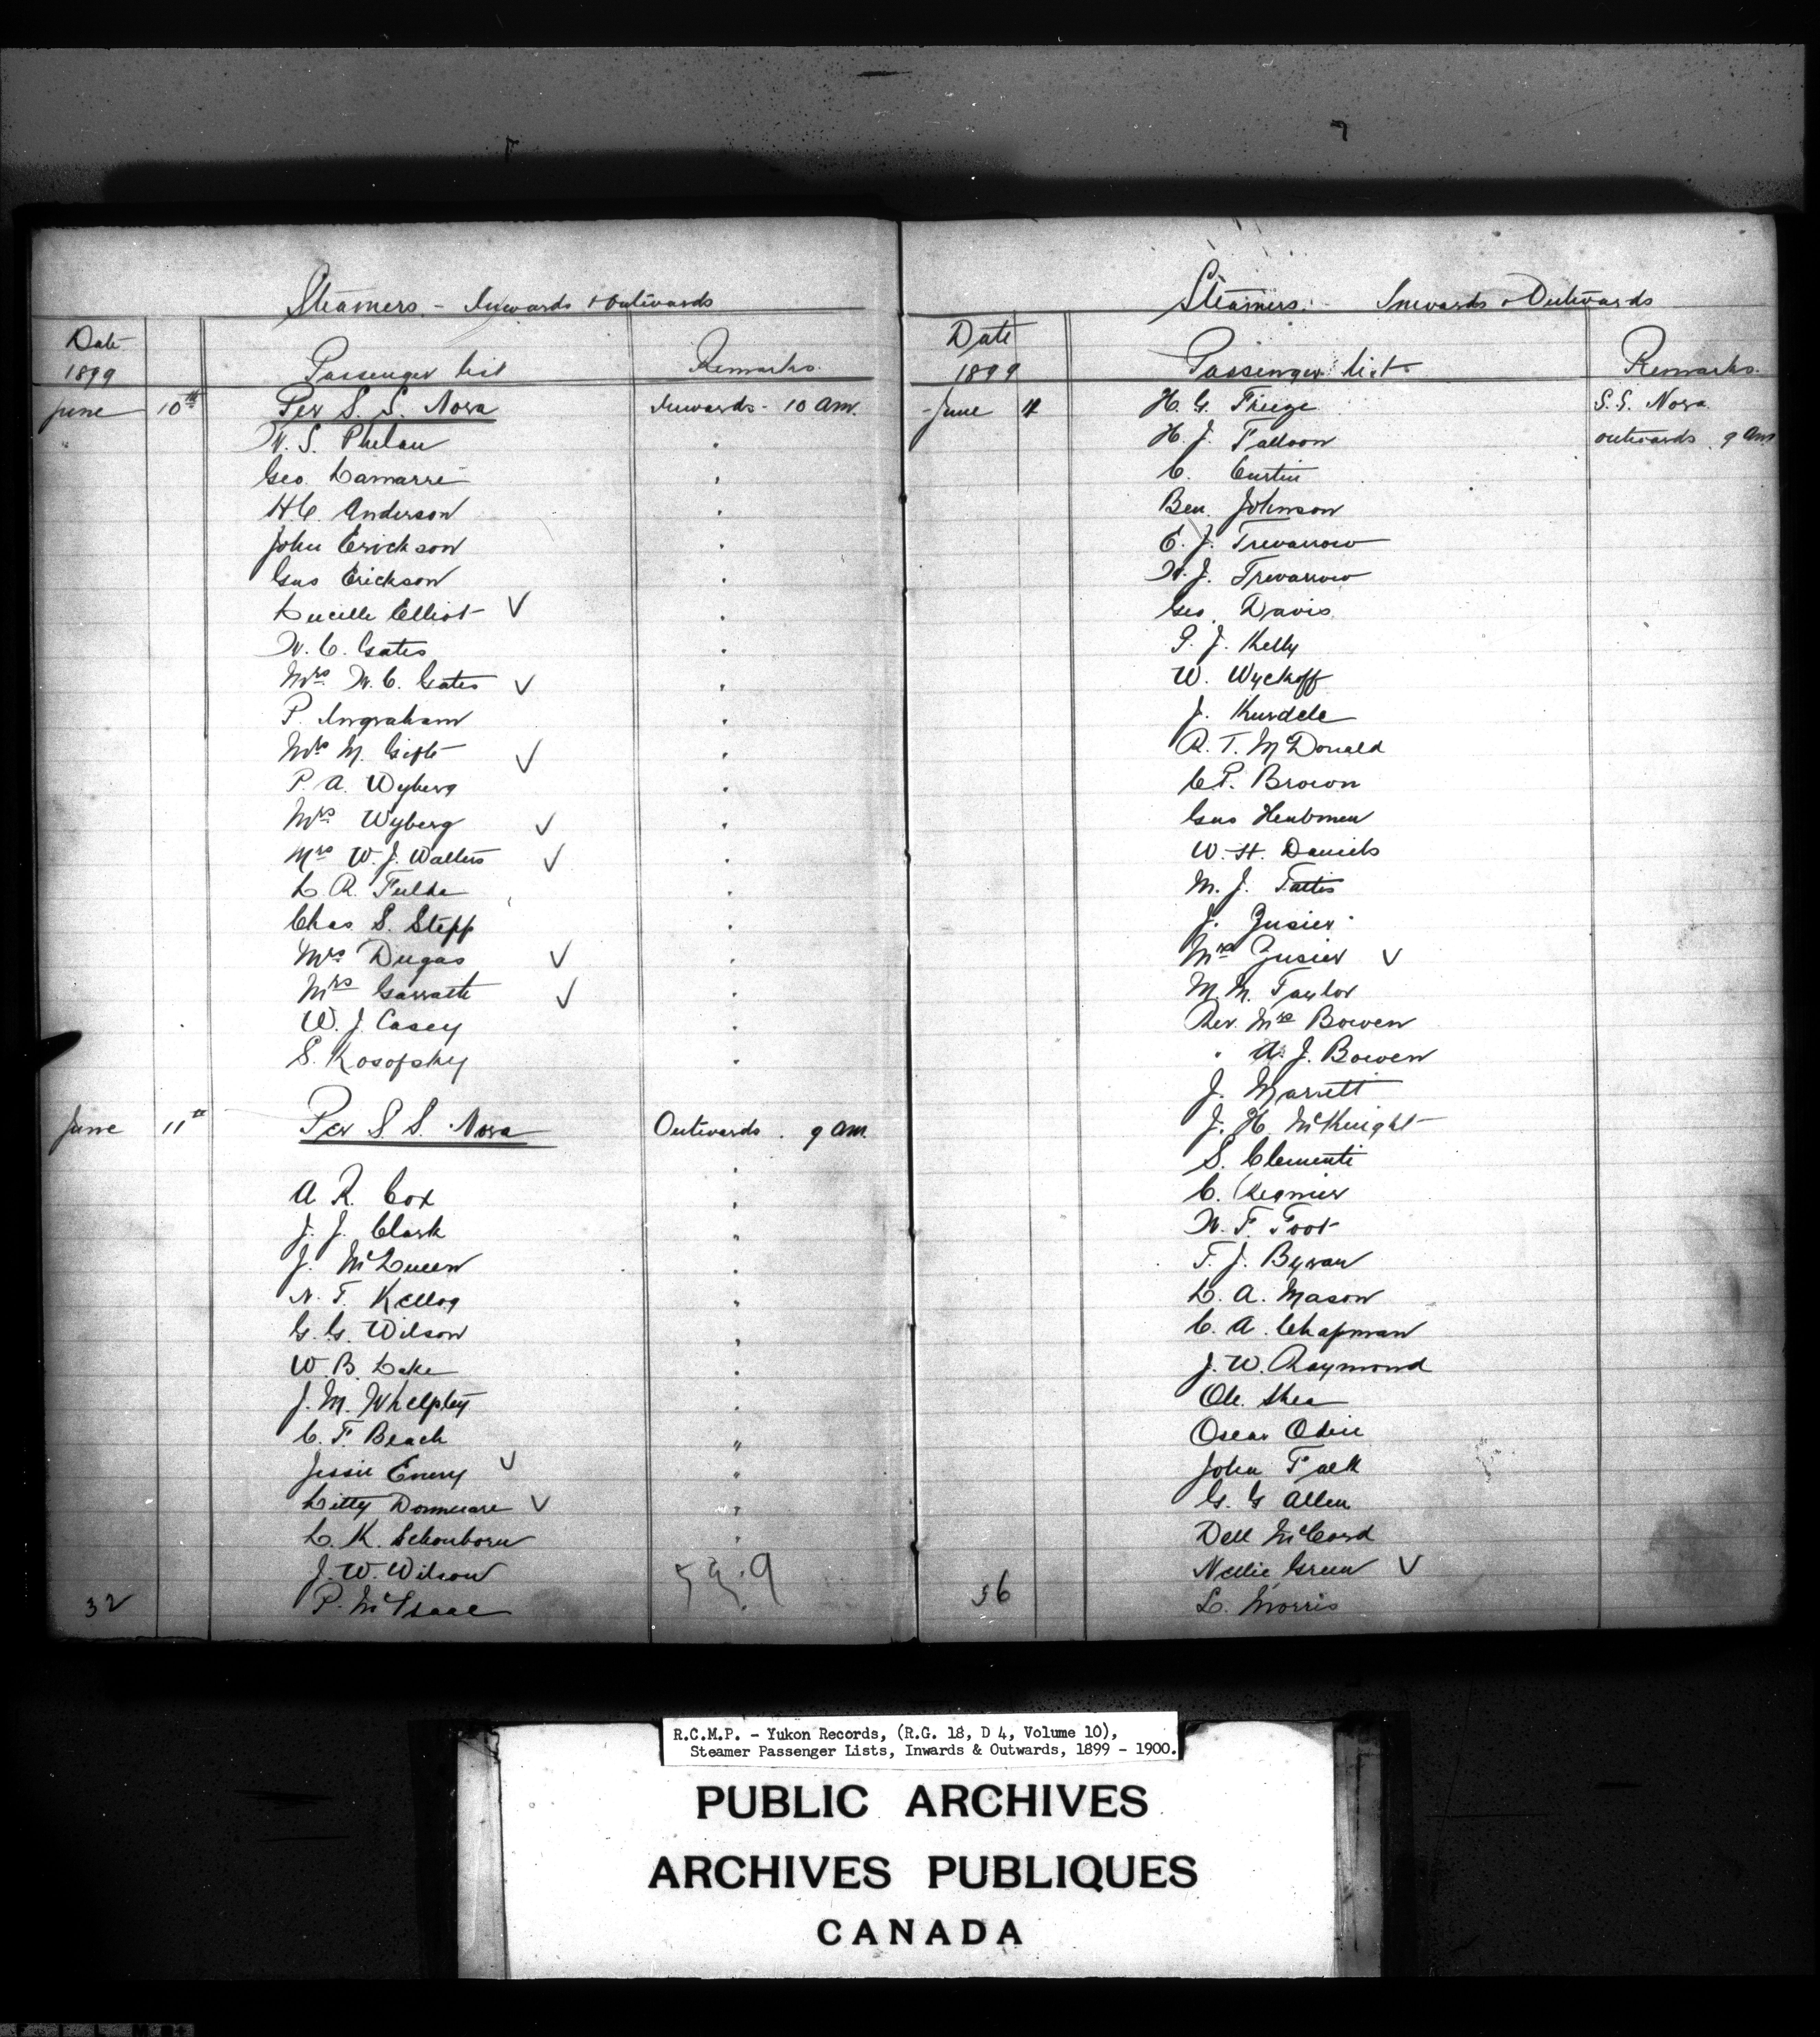 Steamers - Inwards & Outwards
Date
1899
Passenger list
Remarks.
June 10th Per S. S. Nora Inwards - 10 am.
" W. S. Phelan "
Geo. Lamarre "
H C. Anderson "
John Erickson "
Gus Erickson "
Lucille Elliot ✓ "
W. C. Gates "
Mrs W. C. Gates ✓ "
P. Ingraham "
Mrs M. Gift ✓ "
P. A. Wyberg "
Mrs Wyberg ✓ "
Mrs W. J. Walters ✓ "
L R. Fulda "
Chas S. Stepp "
Mrs Dugas ✓ "
Mrs Garratt ✓ "
W. J. Casey "
S. Kosofsky "
June 11th Per S S. Nora Outwards. 9 am.
A R. Cox "
J. J. Clark "
J. McQueen "
N. F. Kellog "
G. G. Wilson "
W. B. Lake "
J. M. Whelpley "
C. F. Beach "
Jessie Emery ✓ "
Litty ✓ "
L. K. Schonborn "
J. W. Wilson
32 P. McIsaac "
Steamers. - Inwards & Outwards
Date
1899
Passenger list
Remarks.
June 11 H. G. S.S. Nora
H. J. Falloon outwards. 9 am
C. Curtin
Ben. Johnson
E. J. Trevarrow
W. J. Trevarrow
Geo. Davis.
P. J. Kelly
W. Wyckoff
J.
R. T. McDonald
C P. Brown
Gus
W. H. Daniels
M. J.
J. Zusier
Mrs Zusier ✓
M. M. Taylor
Rev. Mrs Bowen
" A. J. Bowen
J. Marrett
J. H. McKnight
S. Clementi
C. Regnier
W. F. Foot
T. J. Byran
L. A. Mason
C. A. Chapman
J. W. Raymond
Ole. Shea
Oscar
John Falk
G. G Allen
Dell McCord
Nellie Green ✓
36 L. Morris
R.C.M.P. - Yukon Records, (R.G. 18, D 4, Volume 10),
Steamer Passenger Lists, Inwards & Outwards, 1899 - 1900.
PUBLIC ARCHIVES
ARCHIVES PUBLIQUES
CANADA